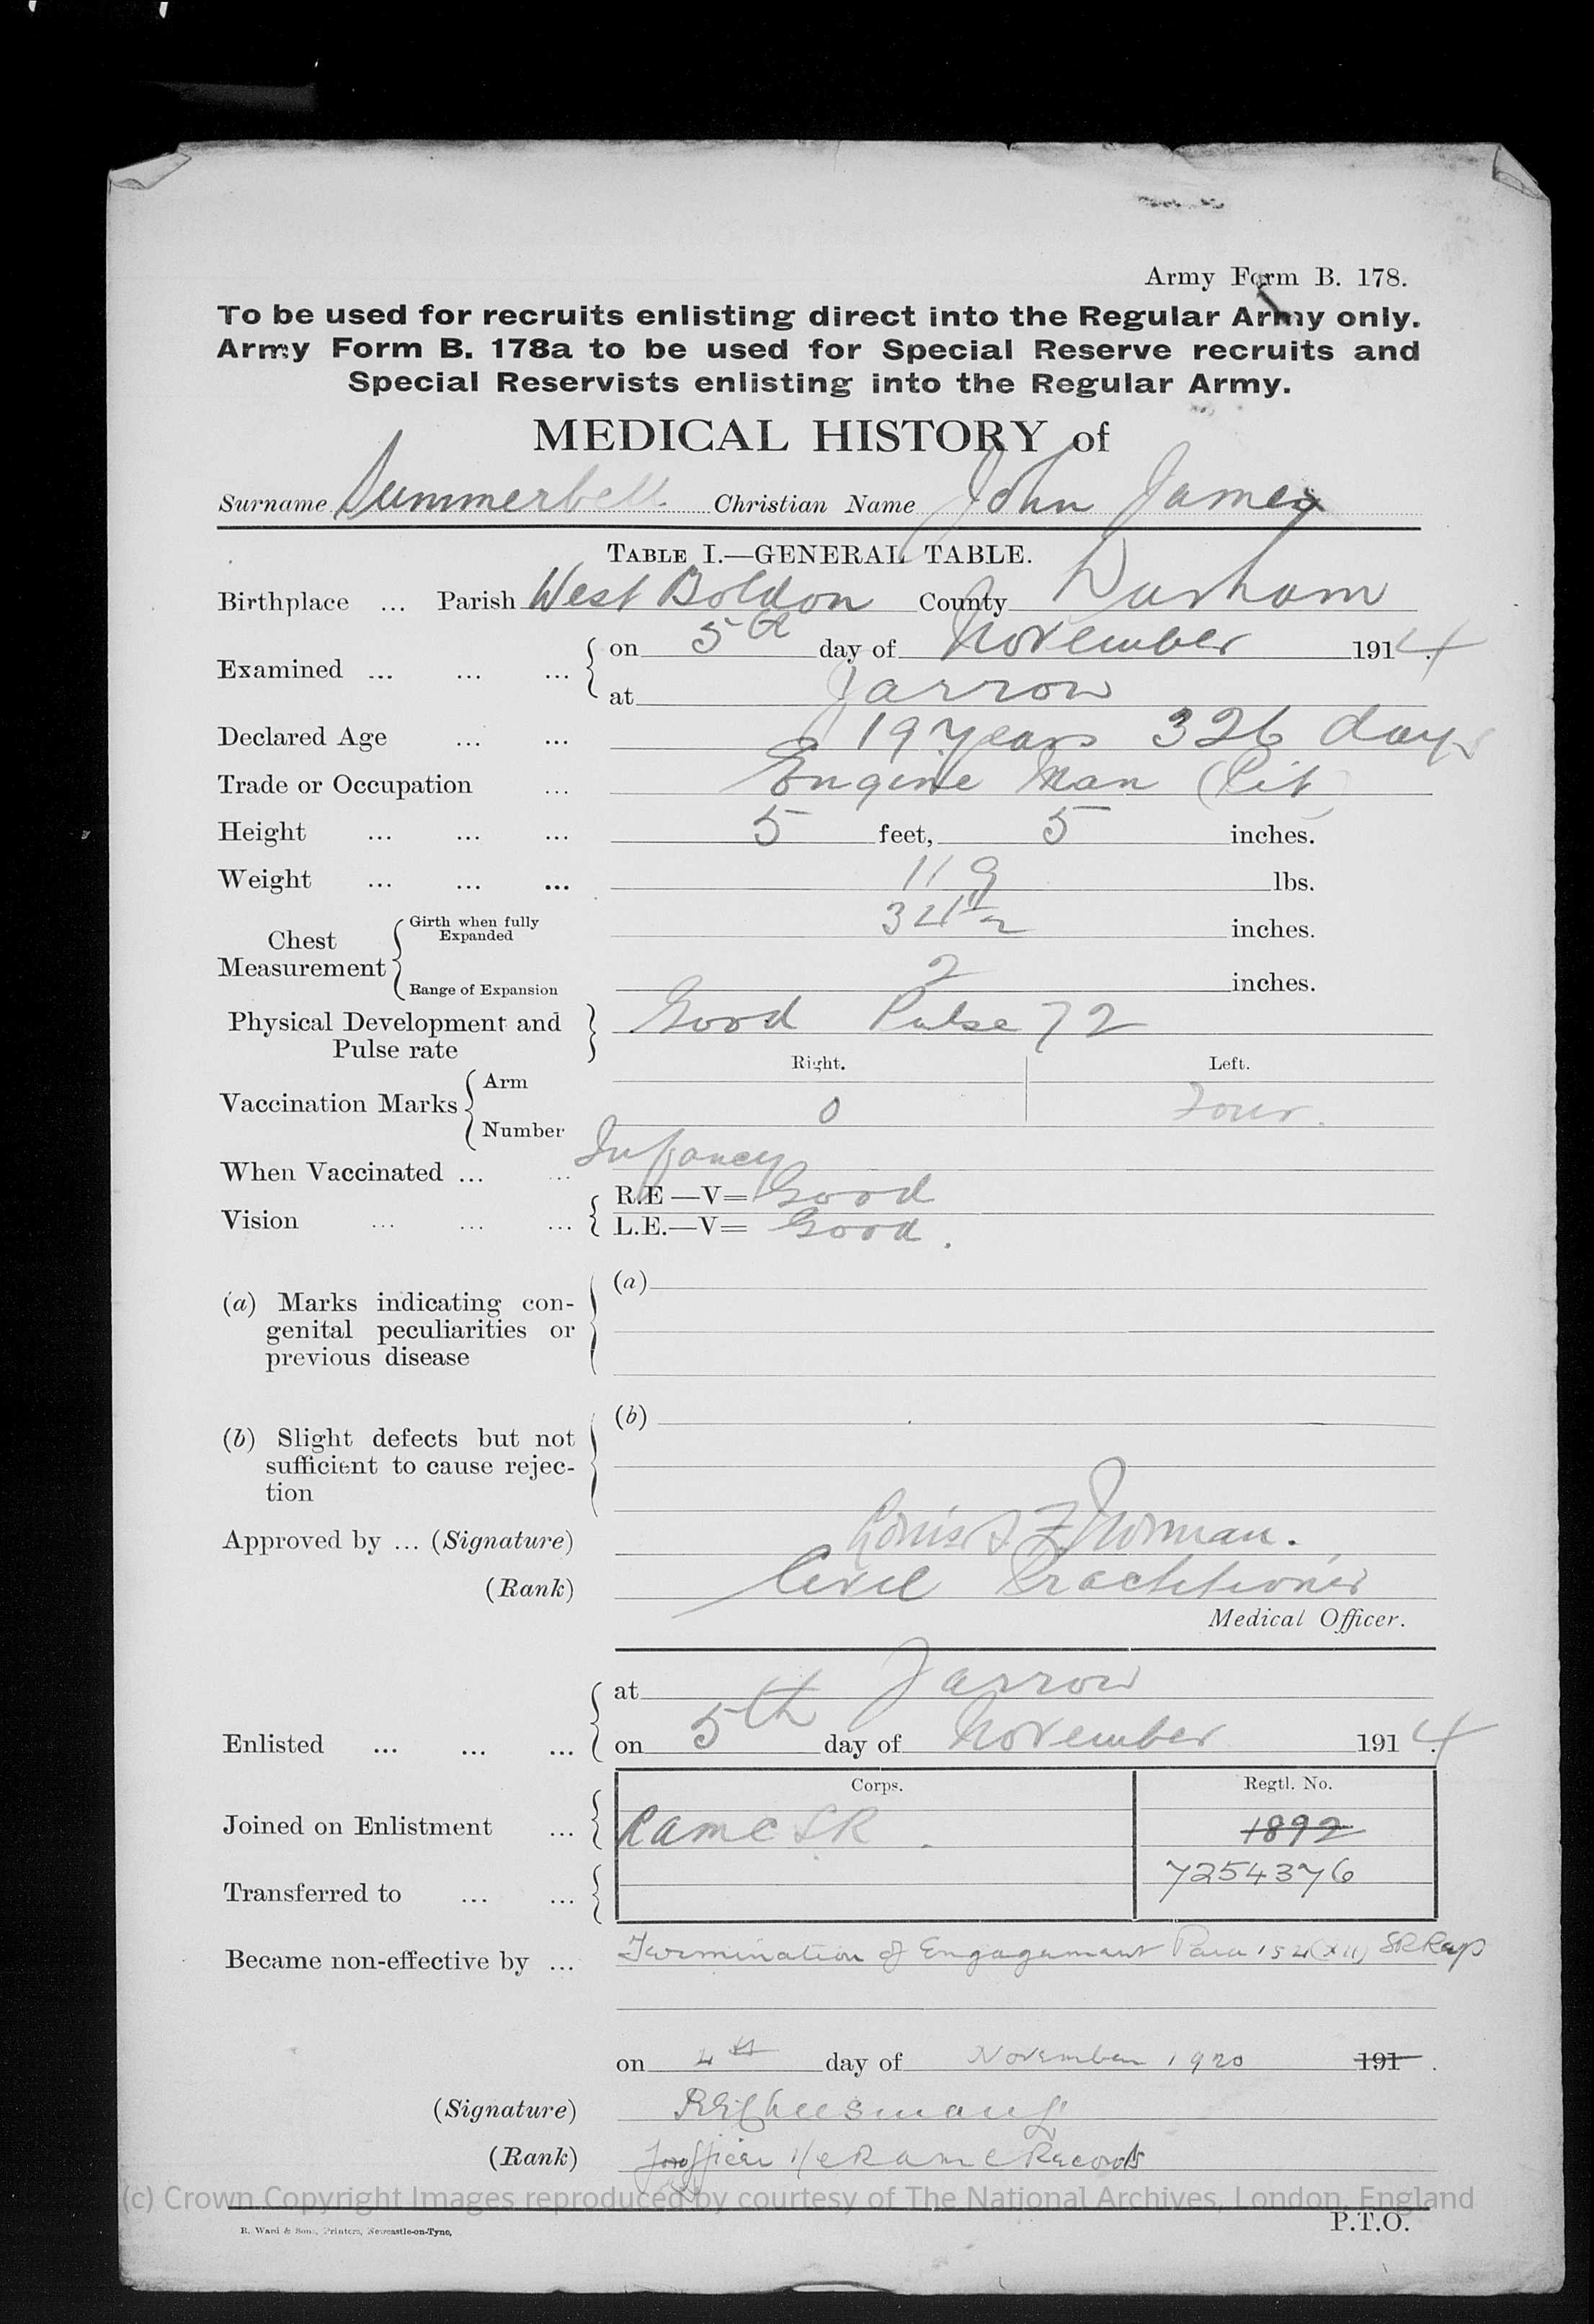 Army Form B. 178.
To be used for recruits enlisting direct into the Regular Army only.
Army Form B. 178a to be used for Special Reserve recruits and
Special Reservists enlisting into the Regular Army.
MEDICAL HISTORY of
Surname Summerbell Christian Name John James
TABLE I.—GENERAL TABLE.
Birthplace ... Parish West Boldon County Durham
Examined ... ... ... on 5th day of November 1914.
at Jarrow
Declared Age ... ... 19 years 326 days
Trade or Occupation ... Engine Man (Pit)
Height ... ... ... 5 feet, 5 inches.
Weight ... ... ... 119 lbs.
Chest Measurement Girth when fully Expanded 34½ inches.
Range of Expansion 2 inches.
Physical Development and Pulse rate Good Pulse 72
Right. Left.
Vaccination Marks Arm
Number 0 Four.
When Vaccinated ... ... Infancy
Vision ... ... ... R.E—V= Good
L.E.—V= Good.
(a) Marks indicating con-
genital peculiarities or
previous disease
(a)
(b) Slight defects but not
sufficient to cause rejec-
tion
(b)
Approved by ... (Signature)
(Rank) Civil Practitioner
Medical Officer.
at Jarrow
Enlisted ... ... ... on 5th day of November 1914.
Corps. Regtl. No.
Joined on Enlistment ... RAMC SR. 1892
7254376
Transferred to ... ...
Became non-effective by ... Termination of Engagement Para 154(XII) SR Regs
on 4th day of November 1920 191.
(Signature)
(Rank) for Officer i/c RAMC Records
(c) Crown Copyright Images reproduced by courtesy of The National Archives, London, England
R. Ward & Sons, Printers, Newcastle-on-Tyne,
P.T.O.